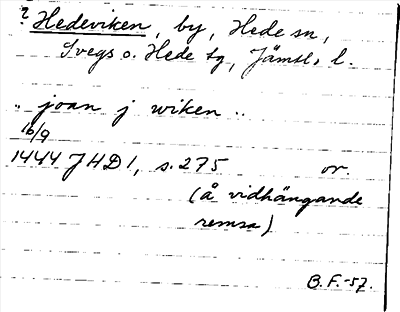 ? Hedeviken, by, Hede sn,
Svegs o. Hede tg, Jämtl. l.
.. joan j wiken ..
16/9
1444 JHD 1, s. 275 or.
(å vidhängande
remsa)
B.F.-57.